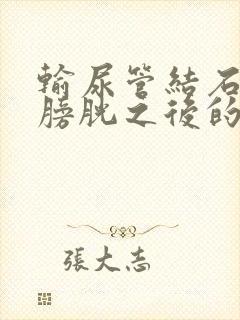 輸尿管結石
膀胱之後的
張大志